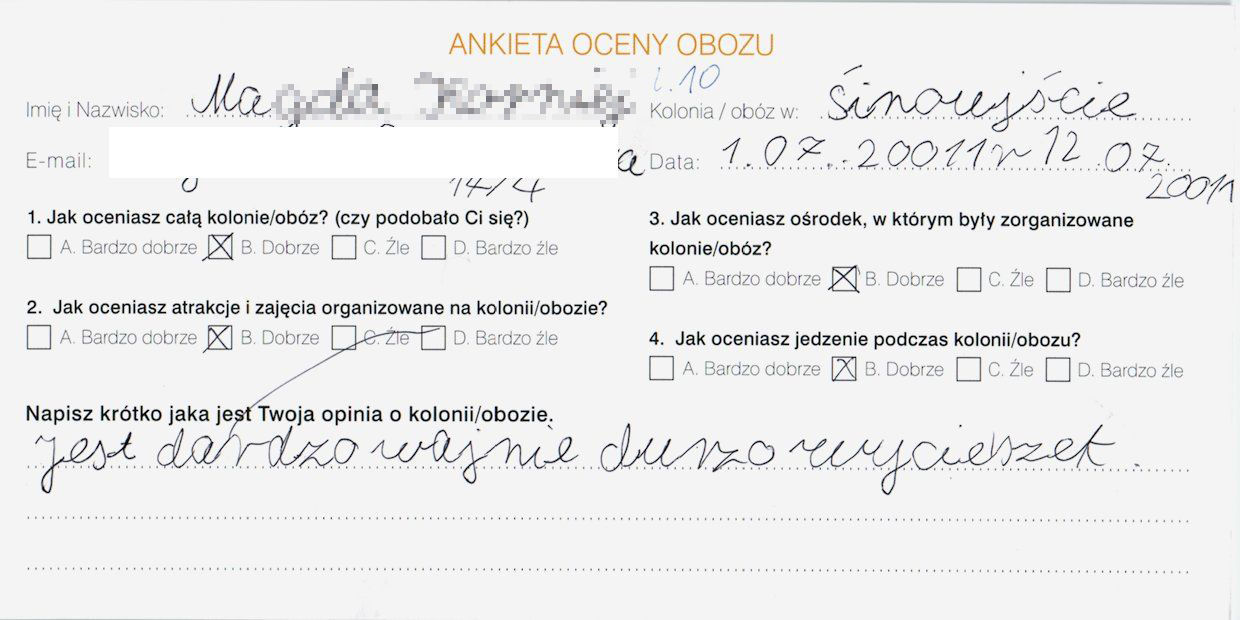 ANKIETA OCENY OBOZU
Imię i Nazwisko: Magda l.10 Kolonia / obóz w: Śinoujście
E-mail: Data: 1.07. 20011r 12.07.
20011
14/4
1. Jak oceniasz całą kolonie/obóz? (czy podobało Ci się?)
A. Bardzo dobrze B. Dobrze C. Źle D. Bardzo źle
2. Jak oceniasz atrakcje i zajęcia organizowane na kolonii/obozie?
A. Bardzo dobrze B. Dobrze C. Źle D. Bardzo źle
3. Jak oceniasz ośrodek, w którym były zorganizowane
kolonie/obóz?
A. Bardzo dobrze B. Dobrze C. Źle D. Bardzo źle
4. Jak oceniasz jedzenie podczas kolonii/obozu?
A. Bardzo dobrze B. Dobrze C. Źle D. Bardzo źle
Napisz krótko jaka jest Twoja opinia o kolonii/obozie.
jest dardzo wajnie durzo wycieszek.